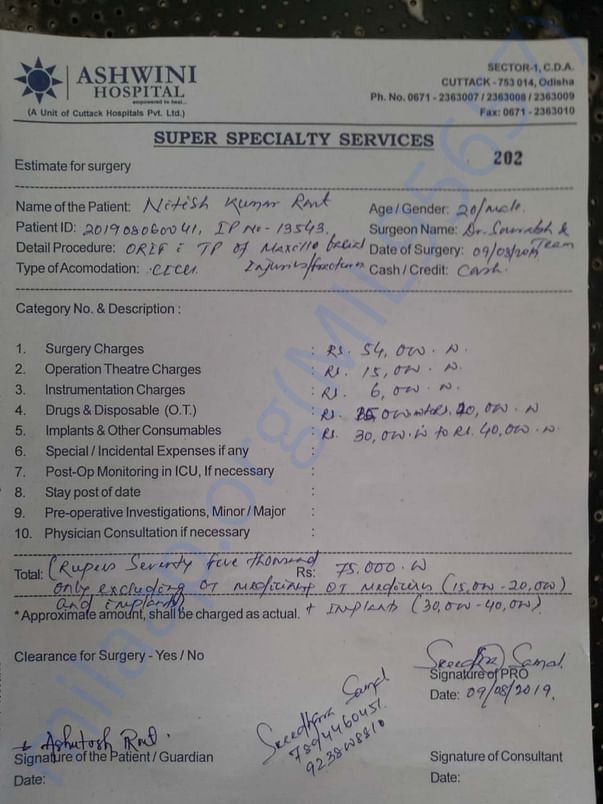 ASHWINI
HOSPITAL
empowered to heal...
(A Unit of Cuttack Hospitals Pvt. Ltd.)
SECTOR-1, C.D.A.
CUTTACK - 753 014, Odisha
Ph. No. 0671 - 2363007 / 2363008 / 2363009
Fax: 0671 - 2363010
SUPER SPECIALTY SERVICES
Estimate for surgery
202
Name of the Patient: Nitish Kumar Rout
Age / Gender: 20/male.
Patient ID: 201908060041, IP No - 13543.
Surgeon Name: Dr. Sourabh & Team
Detail Procedure: ORIF TP of Maxillo facial Injuries/fractures
Date of Surgery: 09/08/2019
Type of Acomodation:
Cash / Credit: Cash.
Category No. & Description :
1. Surgery Charges : Rs. 54,000.00
2. Operation Theatre Charges : Rs. 15,000.00
3. Instrumentation Charges : Rs. 6,000.00
4. Drugs & Disposable (O.T.) : Rs. 15,000 to Rs. 20,000.00
5. Implants & Other Consumables : Rs. 30,000.00 to Rs. 40,000.00
6. Special / Incidental Expenses if any :
7. Post-Op Monitoring in ICU, If necessary :
8. Stay post of date :
9. Pre-operative Investigations, Minor / Major :
10. Physician Consultation if necessary :
Total: (Rupees Seventy five thousand Rs: 75.000.00
only excluding OT medicines OT medicines (15,000-20,000)
and implants)
+ Implants (30,000-40,000)
*Approximate amount, shall be charged as actual.
Clearance for Surgery - Yes / No
Samal
Signature of PRO
Date: 09/08/2019.
Samal
7894460451
Ashutosh Rout
Signature of the Patient / Guardian
Date:
Signature of Consultant
Date: